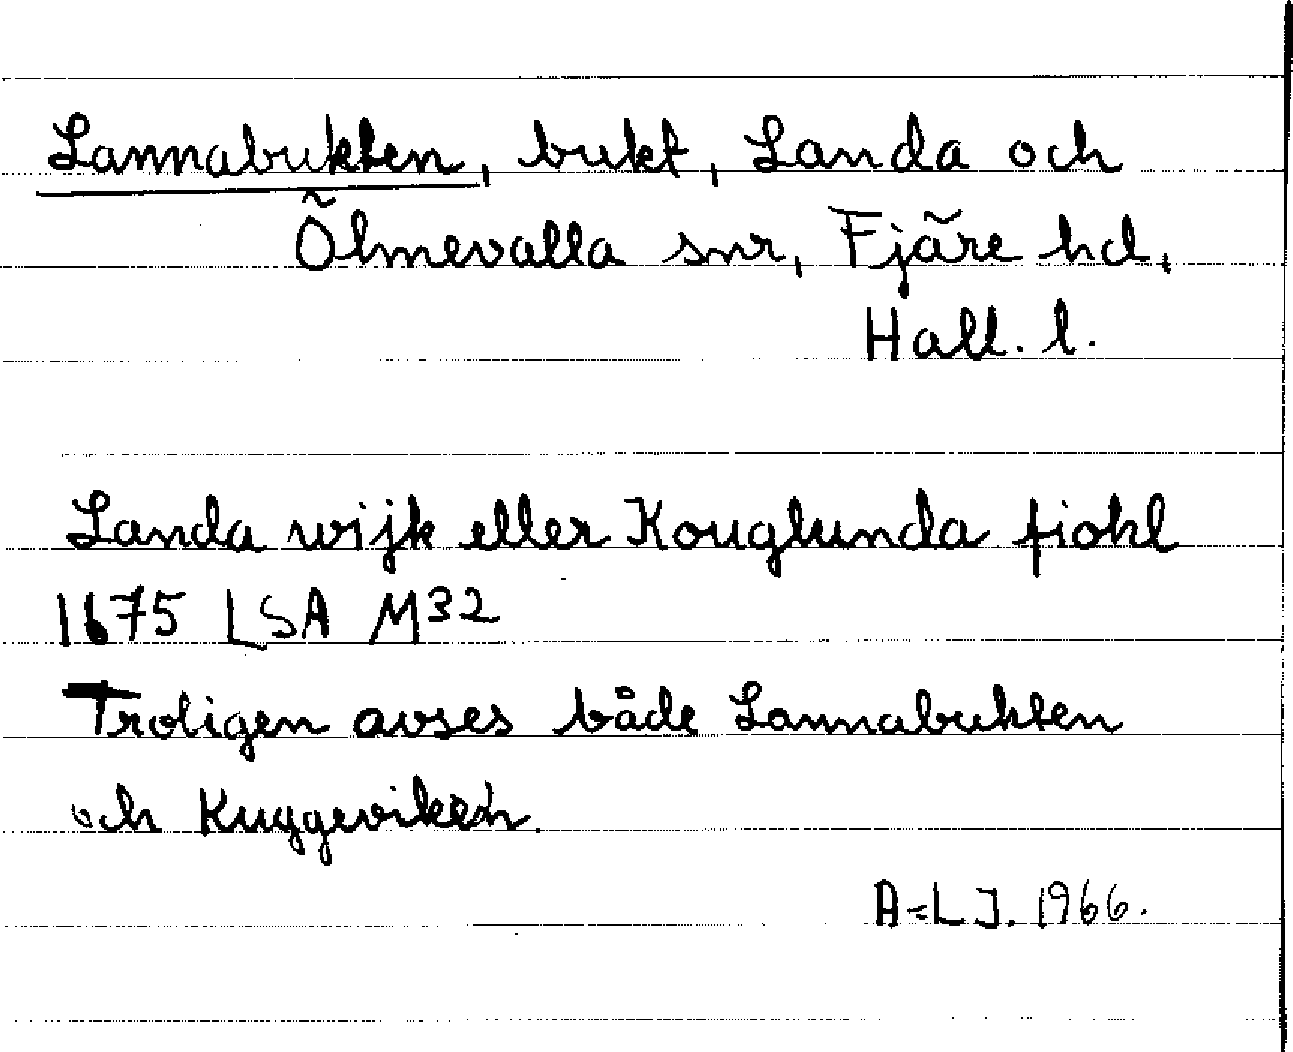 Lannabukten, bukt, Landa och
Ölmevalla snr, Fjäre hd,
Hall. l.
Landa wijk eller Kouglunda fiohl
1675 LSA M32
Troligen avses både Lannabukten
och Kuggeviken.
A-L J. 1966.